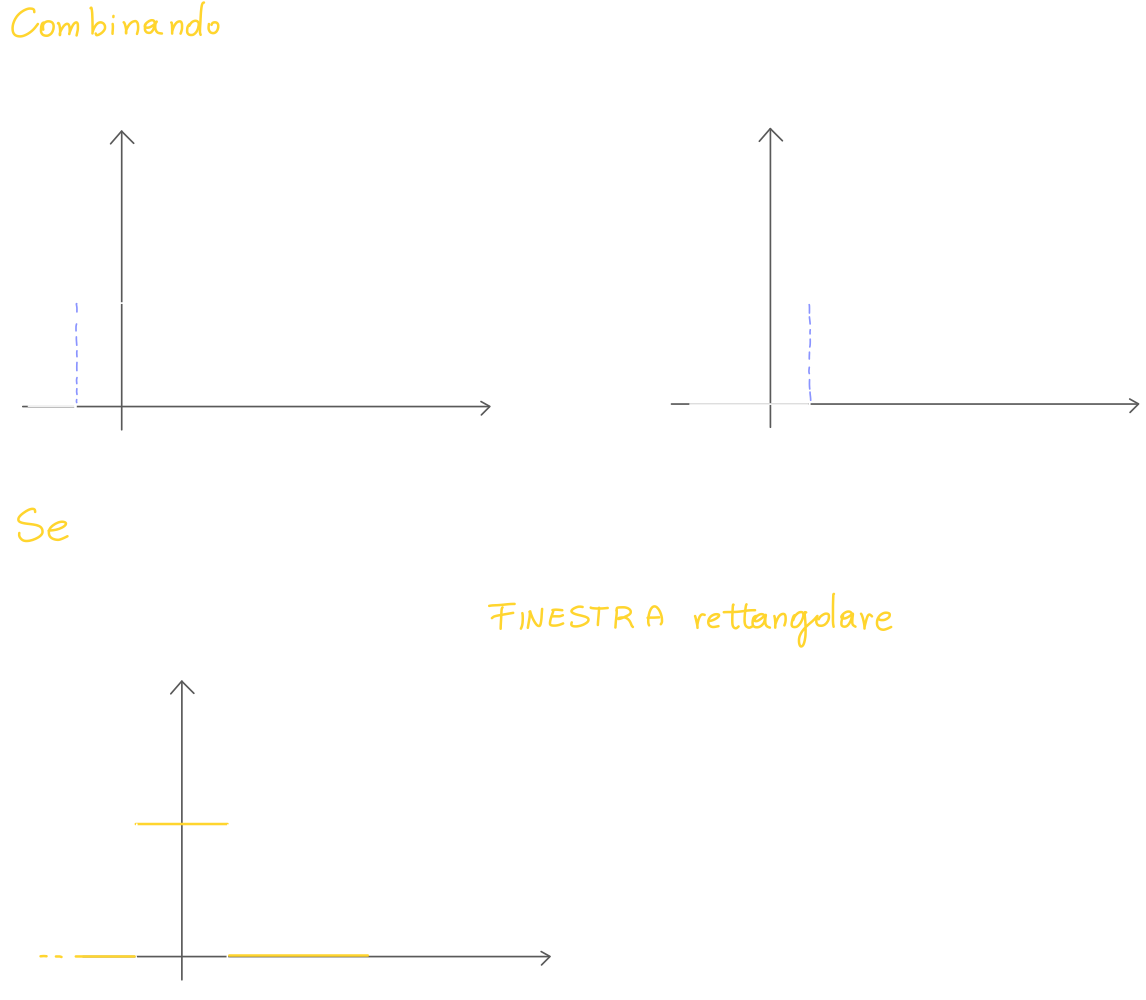 Combinando
Se
FINESTRA rettangolare